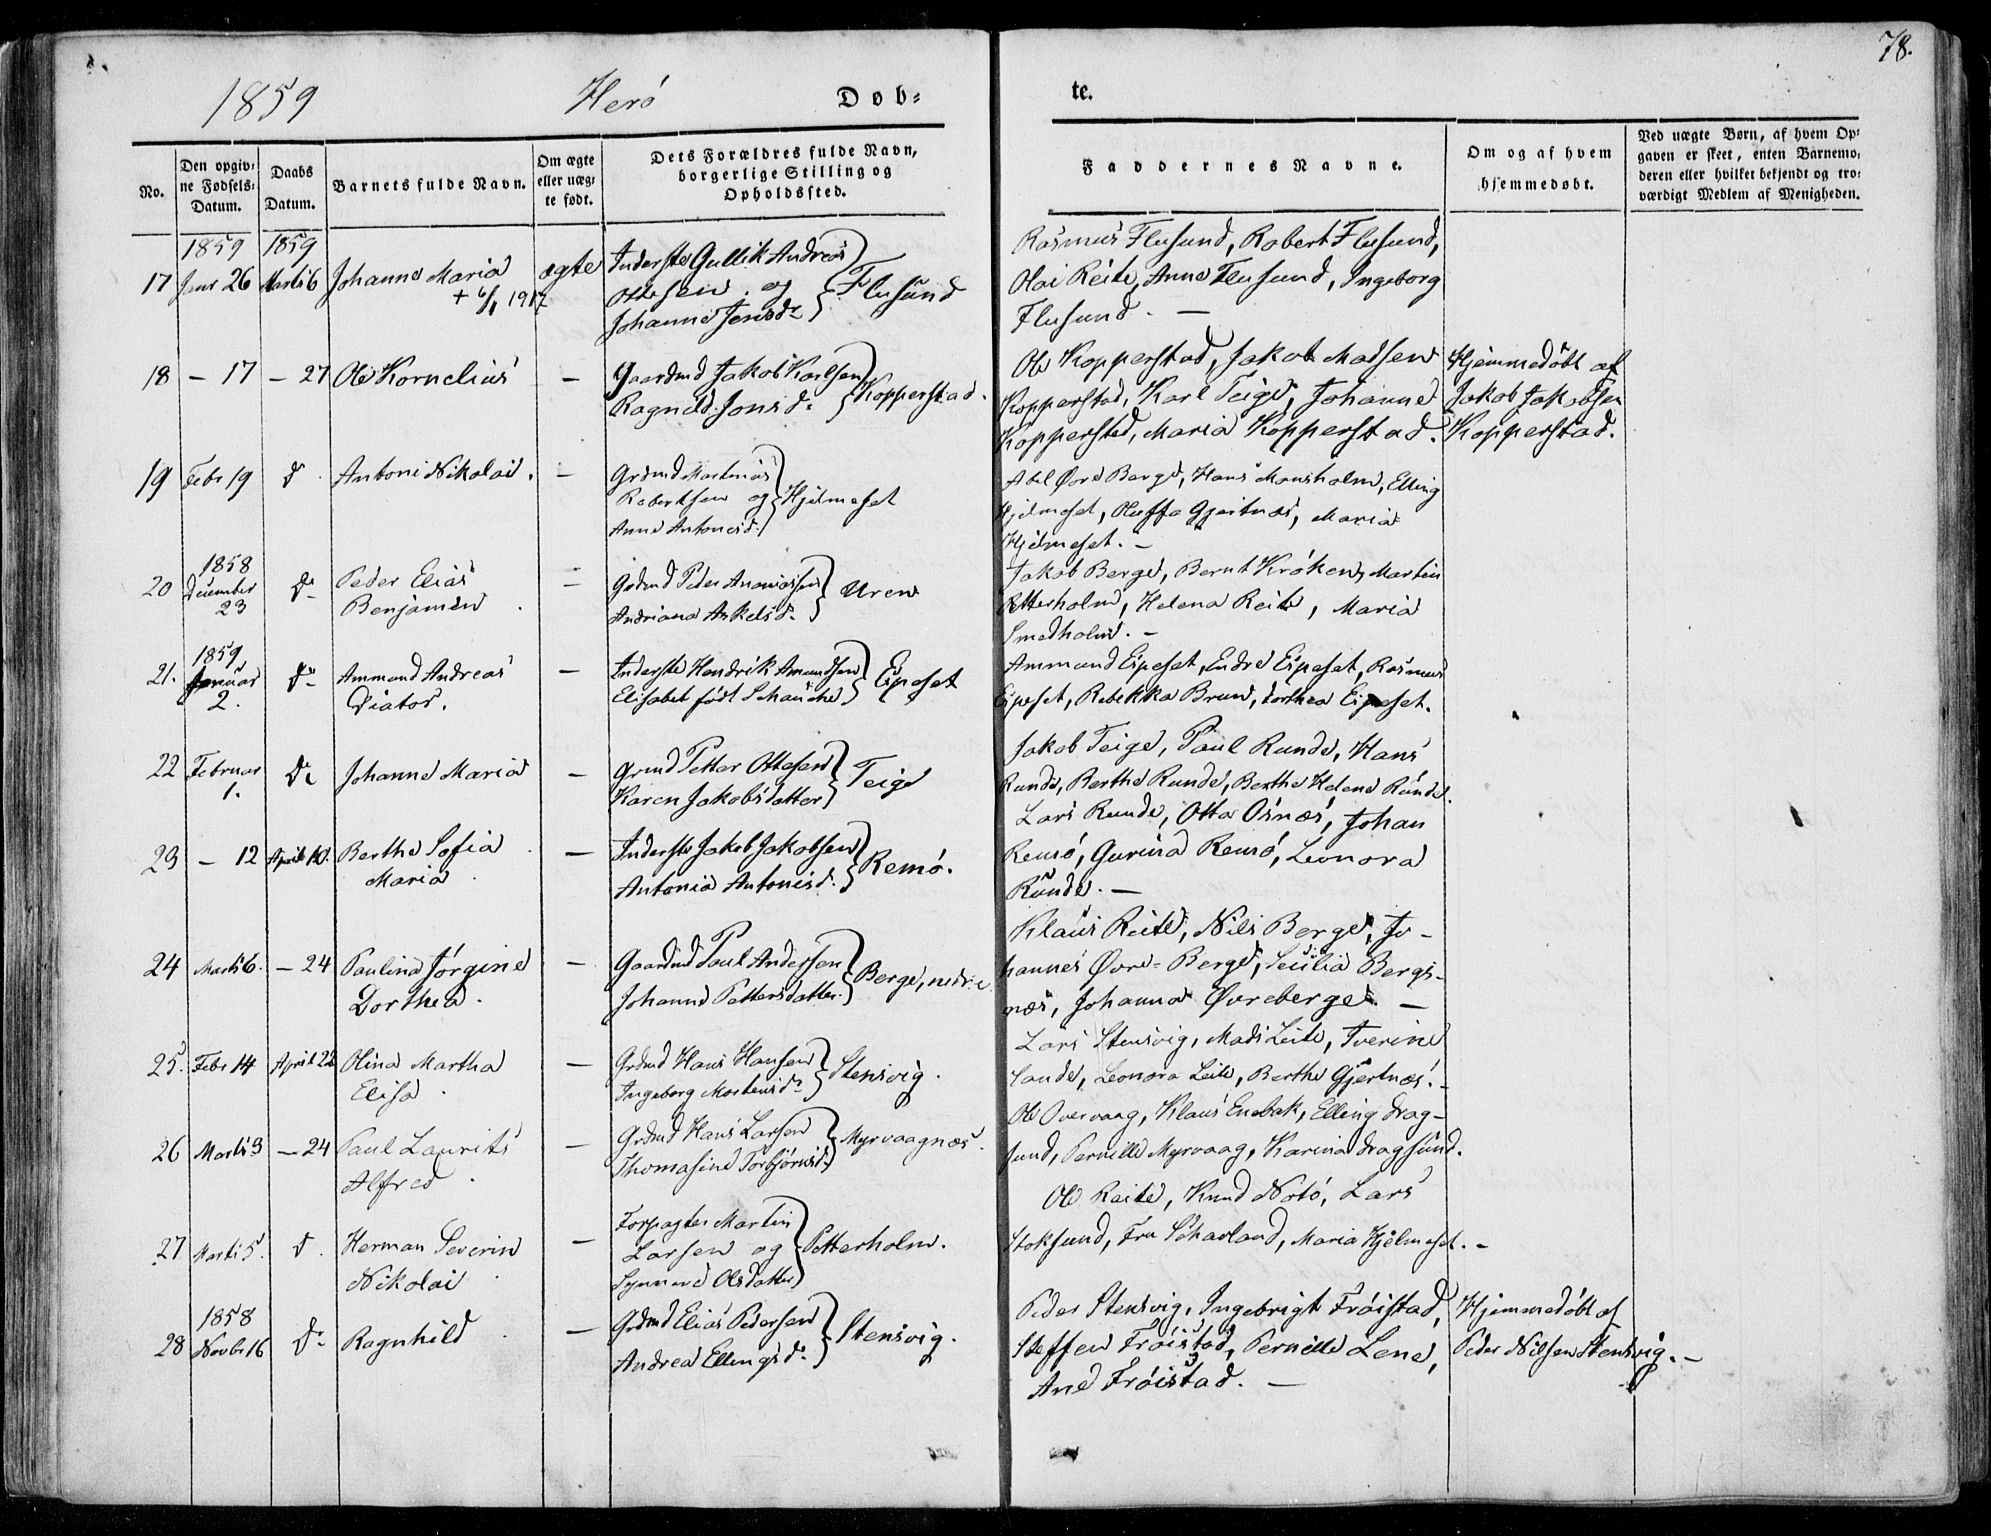 78.
1859 Herö Døb-
te.
No.
Den opgiv-
ne Fødsels-
Datum.
Daabs
Datum.
Barnets fulde Navn.
Om ægte
eller uæg-
te født.
Dets Forældres fulde Navn,
borgerlige Stilling og
Opholdssted.
Faddernes Navne.
Om og af hvem
hjemmedøbt.
Ved uægte Børn, af hvem Op-
gaven er skeet, enten Barnemo-
deren eller hvilket bekjendt og tro-
værdigt Medlem af Menigheden.
1859 1859
17 Janr 26 Marts 6 Johanne Maria ægte
+ 6/1 1917
Inderste Gullik Andreas
Ottesen og
Johanne Jensdr
Flusund
Rasmus Flusund, Robert Flusund,
Olai Reite, Anne Flusund, Ingeborg
Flusund. —
18 — 17 — 27 Ole Kornelius —
Gaardmd Jakob Karlsen
Ragnild Jonsdr
Kopperstad.
Ole Kopperstad, Jakob Madsen
Kopperstad, Karl Teige, Johanne
Kopperstad, Maria Kopperstad.
Hjemmedöbt af
Jakob Jakobsen
Kopperstad.
19 Febr 19 do. Antoni Nikolai. —
Grdmd Martinus
Robertsen og
Anne Antonisd.
Hjelmeset
Abel Øvre Berge, Hans Monsholm, Elling
Hjelmeset, Oleffa Gjertnæs, Maria
Hjelmeset. —
1858
20 December
23
do
Peder Elias
Benjamin
—
Grdmd Peder Ananiassen
Andriana Askelsd.
Uren
Jakob Berge, Bernt Kröken, Martin
Petterholm, Helena Reite, Maria
Smedholm. —
1859
21. Januar
2.
do
Ammund Andreas
Diator.
—
Inderste Hendrik Amundsen
Elisabet födt Schanche
Eipeset
Ammund Eipeset, Endre Eipeset, Rasmus
Eipeset, Rebekka Brun, Dorthea Eipeset.
22 Februar
1.
do
Johanne Maria —
Grmd Petter Ottesen
Karen Jakobsdatter
Teige
Jakob Teige, Paul Runde, Hans
Runde, Berthe Runde, Berthe Helene Runde.
23 — 12 April 10. Berthe Sofia
Maria
—
Inderste Jakob Jakobsen
Antonia Antonisd.
Remö.
Lars Runde, Otto Osnæs, Johan
Remö, Gurina Remö, Leonora
Runde. —
24 Marts 6. — 24 Paulina Jørgine
Dorthea.
—
Gaardmd Paul Andersen
Johanne Pettersdatter
Berge, nedre
Klaus Reite, Nils Berge, Jo-
hannes Øvre-Berge, Secilia Bergs-
næs, Johanna Øvreberge. —
25. Febr 14 April 22 Olina Martha
Elisa.
—
Grdmd Hans Hansen
Ingeborg Mortensdr
Stensvig.
Lars Stensvig, Mads Leite, Iverine
Sande, Leonora Leite, Berthe Gjertnæs. —
26 Marts 3 — 24 Paul Laurits
Alfred.
—
Grdmd Hans Larsen
Thomasine Torbjörnsd.
Myrvaagnæs.
Ole Overvaag, Klaus Enebak, Elling Drag-
sund, Pernille Myrvaag, Karina Dragsund.
27 Marts 5. do. Herman Severin
Nikolai
—
Forpagter Martin
Larsen og
Synneve Olsdatter
Petterholm.
Ole Reite, Knud Notö, Lars
Stoksund, Fru Schavland, Maria Hjelmeset. —
1858
28 Novbr 16 do Ragnhild —
Grdmd Elias Pedersen
Andrea Ellingsd.
Stensvig.
Peder Stensvig, Ingebrigt Fröistad,
Steffen Fröistad, Pernille Lene,
Ane Fröistad. —
Hjemmedöbt af
Peder Nilsen Stensvig. —